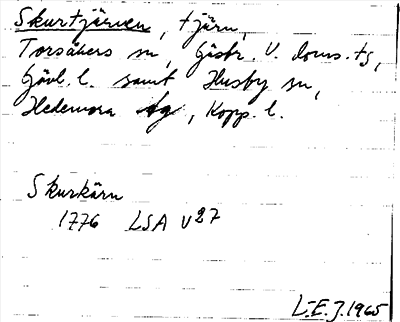 Skurtjärnen, tjärn,
Torsåkers sn, Gästr. V. doms. tg,
Gävl. l. samt Husby sn,
Hedemora tg, Kopp. l.
Skurkärn
1776 LSA V27
L.E.J. 1965